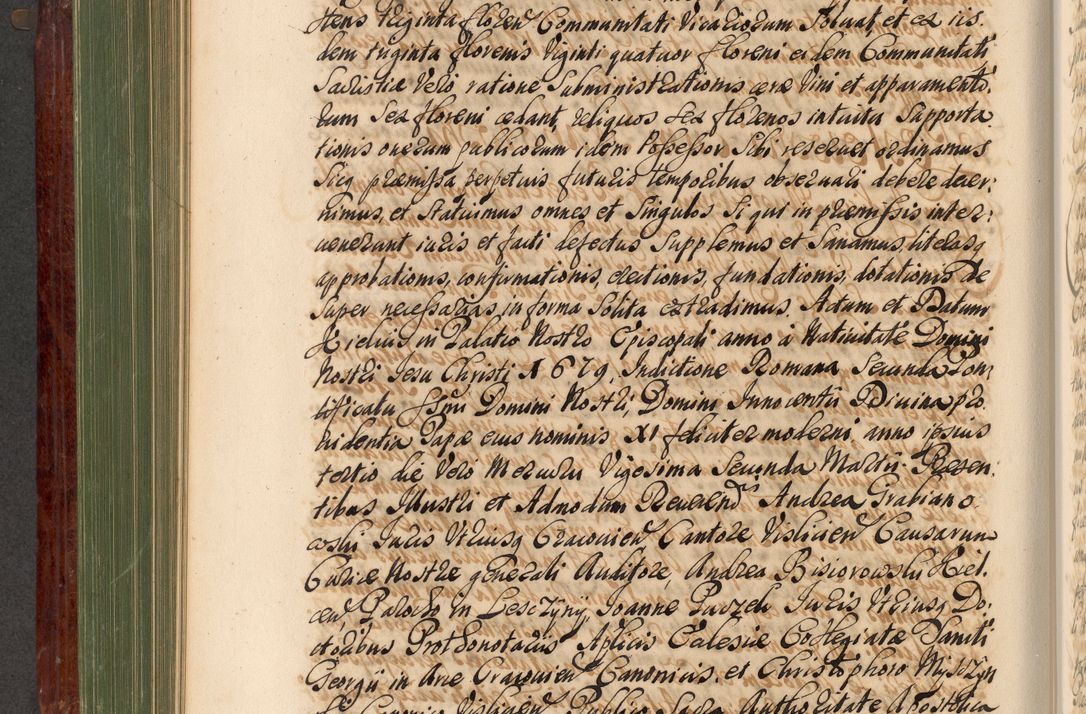 tens triginta floren Communitati Vicariorum Soluat, et ex iis
dem triginta florenis Viginti quatuor floreni eidem Communitati
Sacristiæ Vero, ratione Subministrationis ceræ Vini et apparamento,
rum Sex floreni cedant, reliquos Sex florenos intuitu Supporta
tionis onerum publicorum idem Possessor Sibi reseruet ordinamus
Sicq præmissa perpetuis futuris temporibus obseruari debere decer:
nimus, et Statuimus omnes et Singulos Si qui in præmissis inter:
uenerunt iuris et facti defectus Supplemus et Sanamus literasq
approbationis, confirmationis, erectionis, fundationis, dotationis de
Super necessarias, in forma Solita extradimus. Actum et Datum
Kielciis in Palatio Nostro Episcopali anno à Natiuitate Domini
Nostri Jesu Christi 1679, Indictione Romana Secunda Pon,
tificatu Ssmi Domini Nostri, Domini Innocentii Diuina pro
uidentia Papæ eius nominis XI feliciter moderni anno ipsius
tertio die Vero Mercurii Vigesima Secunda Martii. Præsen:
tibus Illustri et Admodum Reuerend Andrea Grabiano
coski Juris Utriusq Cracouien Cantore Visliciен Causarum
Curiæ Nostræ generali Auditore, Andrea Bisiorowski Kiel.
cen Parocho in Lesczyny, Joanne Paszek Juris Utriusq Do:
ctoribus Prothonotariis Aplicis Eclesiæ Collegiatæ Sancti
Georgii in Arce Cracouien Canonicis, et Christophoro Mysczyn
Canonico Vislicien Publico Sacra Authoritate Apostolica